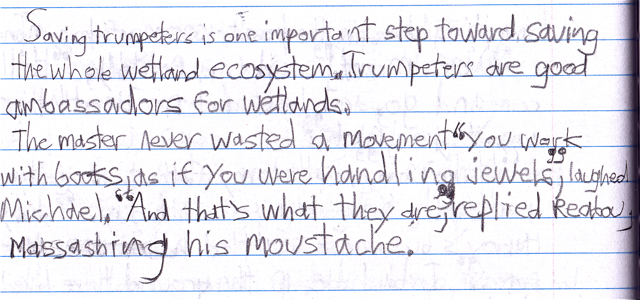 Saving trumpeters is one important step toward saving
the whole wetland ecosystem. Trumpeters are good
ambassadors for wetlands.
The master never wasted a movement "you work
with books, as if you were handling jewels", laughed
Michael. "And that's what they are", replied
Massashing his moustache.